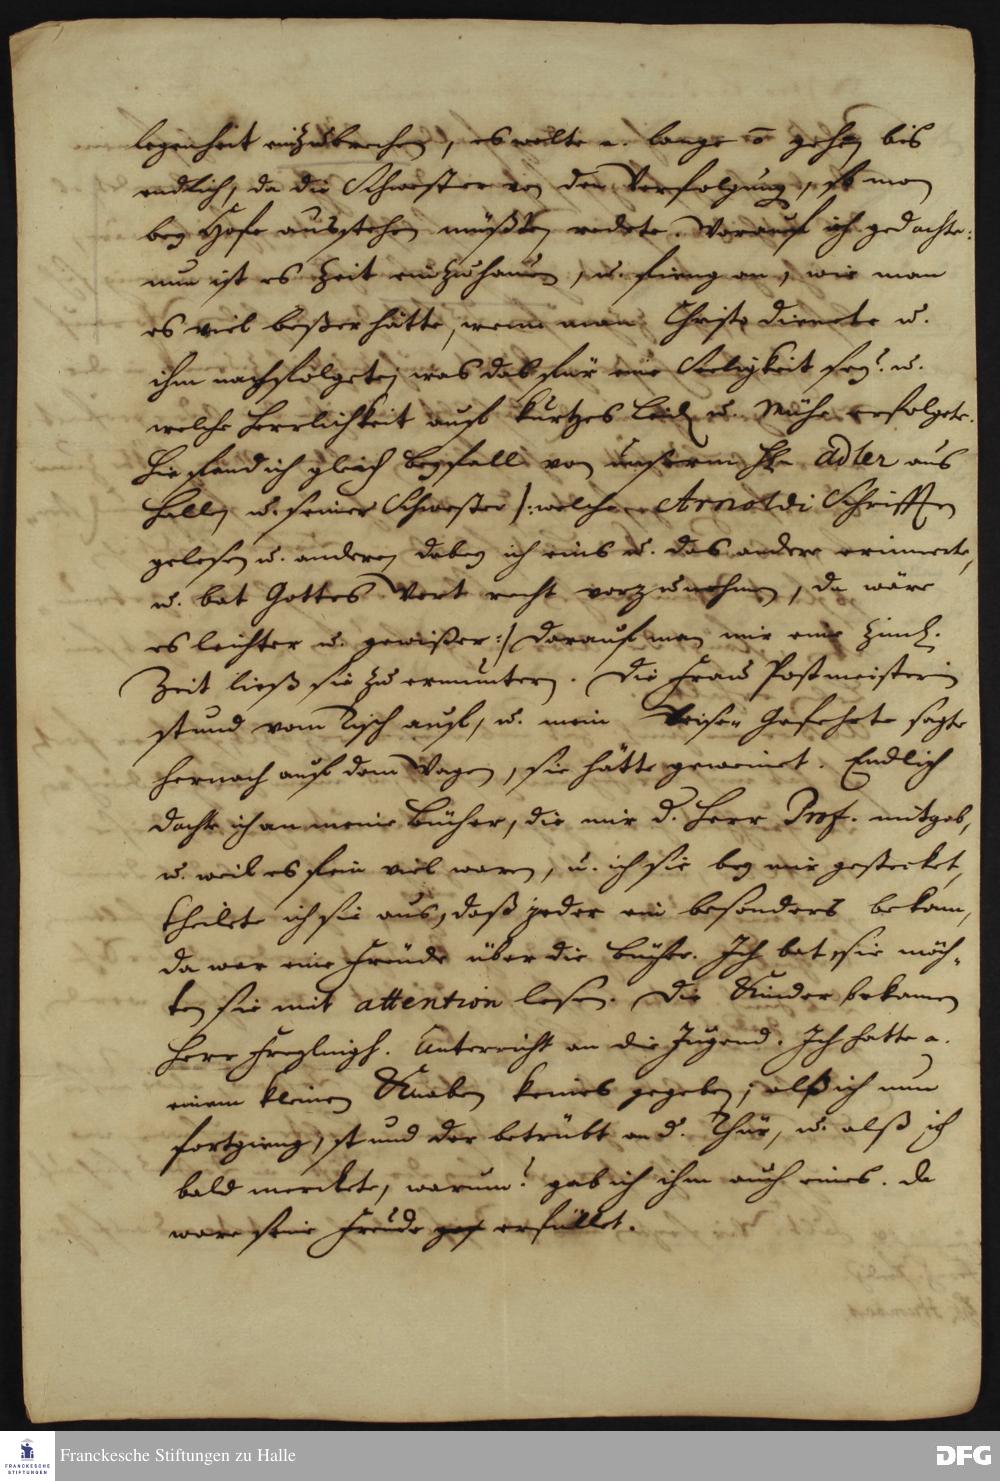 legenheit einzubrechen, es wolte a. lange õ gehen bis
endlich, da die Schwester von der Verfolgung, so man
bey Hofe ausstehen müßte, redete. Worauf ich gedachte:
nun ist es Zeit einzuhauen, u. fieng an, wie man
es viel beßer hätte, wenn man Christo dienete u.
ihm nachfolgete; was das für eine Seeligkeit sey? u.
welche Herrlichkeit auf kurtzes Leid u. Mühe erfolgete.
Hie fand ich gleich beyfall von unserm H. Adler aus
Hall, u. seiner Schwester /: welche Arnoldi Schrifften
gelesen u. andere, dabey ich eins u. das andere erinnerte,
u. bat Gottes Wort recht vorzunehmen, da wäre
es leichter u. gewißer :/ darauf man mir eine ziml.
Zeit ließ sie zu ermuntern. Die Frau Postmeisterin
stund vom Tisch auf, u. mein Reise-Gefehrte sagte
hernach auf dem Wagen, sie hätte geweinet. Endlich
dachte ich an meine Bücher, die mir d. Herr Prof. mitgab,
u. weil es fein viel waren, u. ich sie bey mir gestecket,
theilete ich sie aus, daß jeder ein besonders bekam,
da war eine Freude über die Bücher. Ich bat, sie möch-
ten sie mit attention lesen. Die Kinder bekamen
Herr Freylingh. Unterricht an die Jugend. Ich hatte a.
einem kleinen Knaben keines gegeben; alß ich nun
fortgieng, stund der betrübt an d. Thür, u. alß ich
bald merckete, warum? gab ich ihm auch eines. Da
ware seine Freude erfüllet.
Franckesche Stiftungen zu Halle
FRANCKESCHE
STIFTUNGEN
DFG